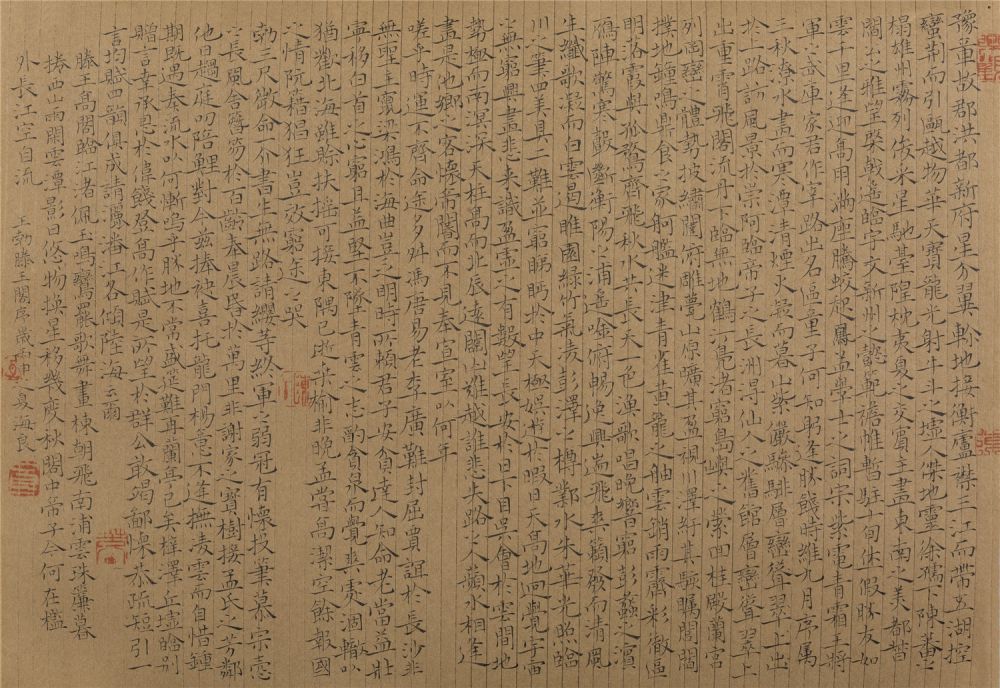 豫章故郡洪都新府星分翼軫地接衡廬襟三江而帶五湖控
蠻荊而引甌越物華天寶龍光射牛斗之墟人傑地靈徐孺下陳蕃之
榻雄州霧列俊采星馳臺隍枕夷夏之交賓主盡東南之美都督
閻公之雅望棨戟遙臨宇文新州之懿範襜帷暫駐十旬休假勝友如
雲千里逢迎高朋滿座騰蛟起鳳孟學士之詞宗紫電青霜王將
軍武庫家君作宰路出名區童子何知躬逢勝餞時維九月序屬
三秋潦水盡而寒潭清煙光凝而暮山紫儼驂騑層巒聳翠上出
於上路訪風景於崇阿臨帝子之長洲得仙人之舊館層巒聳翠上
出重霄飛閣流丹下臨無地鶴汀鳧渚窮島嶼之縈回桂殿蘭宮
列岡巒之體勢披繡闥俯雕甍山原曠其盈視川澤紆其駭矚閭閻
撲地鐘鳴鼎食之家舸艦迷津青雀黃龍之舳雲銷雨霽彩徹區
明落霞與孤鶩齊飛秋水共長天一色漁歌唱晚響窮彭蠡之濱
雁陣驚寒聲斷衡陽之浦遙吟俯暢逸興遄飛爽籟發而清風
生纖歌凝而白雲遏睢園綠竹氣凌彭澤之樽鄴水朱華光照臨
川之筆四美具二難並窮睇眄於中天極娛遊於暇日天高地迥覺宇宙
之無窮興盡悲來識盈虛之有數望長安於日下目吳會於雲間地
勢極而南溟深天柱高而北辰遠關山難越誰悲失路之人萍水相逢
盡是他鄉之客懷帝閽而不見奉宣室以何年
嗟乎時運不齊命途多舛馮唐易老李廣難封屈賈誼於長沙非
無聖主竄梁鴻於海曲豈乏明時所賴君子安貧達人知命老當益壯
寧移白首之心窮且益堅不墜青雲之志酌貪泉而覺爽處涸轍以
猶歡北海雖賒扶搖可接東隅已逝桑榆非晚孟嘗高潔空餘報國
之情阮藉猖狂豈效窮途之哭
勃三尺微命一介書生無路請纓等終軍之弱冠有懷投筆慕宗愨
之長風舍簪笏於百齡奉晨昏於萬里非謝家之寶樹接孟氏之芳鄰
他日趨庭叨陪鯉對今茲捧袂喜托龍門楊意不逢撫凌雲而自惜鍾
期既遇奉流水以何慚嗚乎勝地不常盛筵難再蘭亭已矣梓澤丘墟臨別
贈言幸承恩於偉餞登高作賦是所望於群公敢竭鄙懷恭疏短引一
言均賦四韻俱成請灑潘江各傾陸海云爾
滕王高閣臨江渚佩玉鳴鸞罷歌舞畫棟朝飛南浦雲珠簾暮
捲西山雨閒雲潭影日悠悠物換星移幾度秋閣中帝子今何在檻
外長江空自流
王勃滕王閣序歲丙申之夏海良